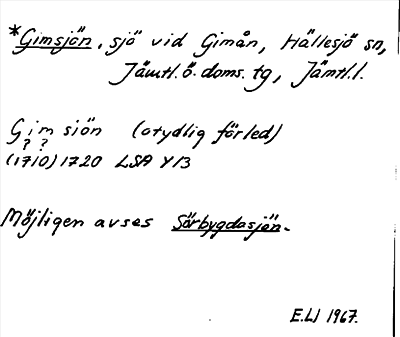 *Gimsjön, sjö vid Gimån, Hällesjö sn,
Jämtl. ö. doms. tg, Jämtl. l.
Gim siön (otydlig förled)
? ?
(1710) 1720 LSA Y13
Möjligen avses Sörbygdasjön.
E.LJ 1967.